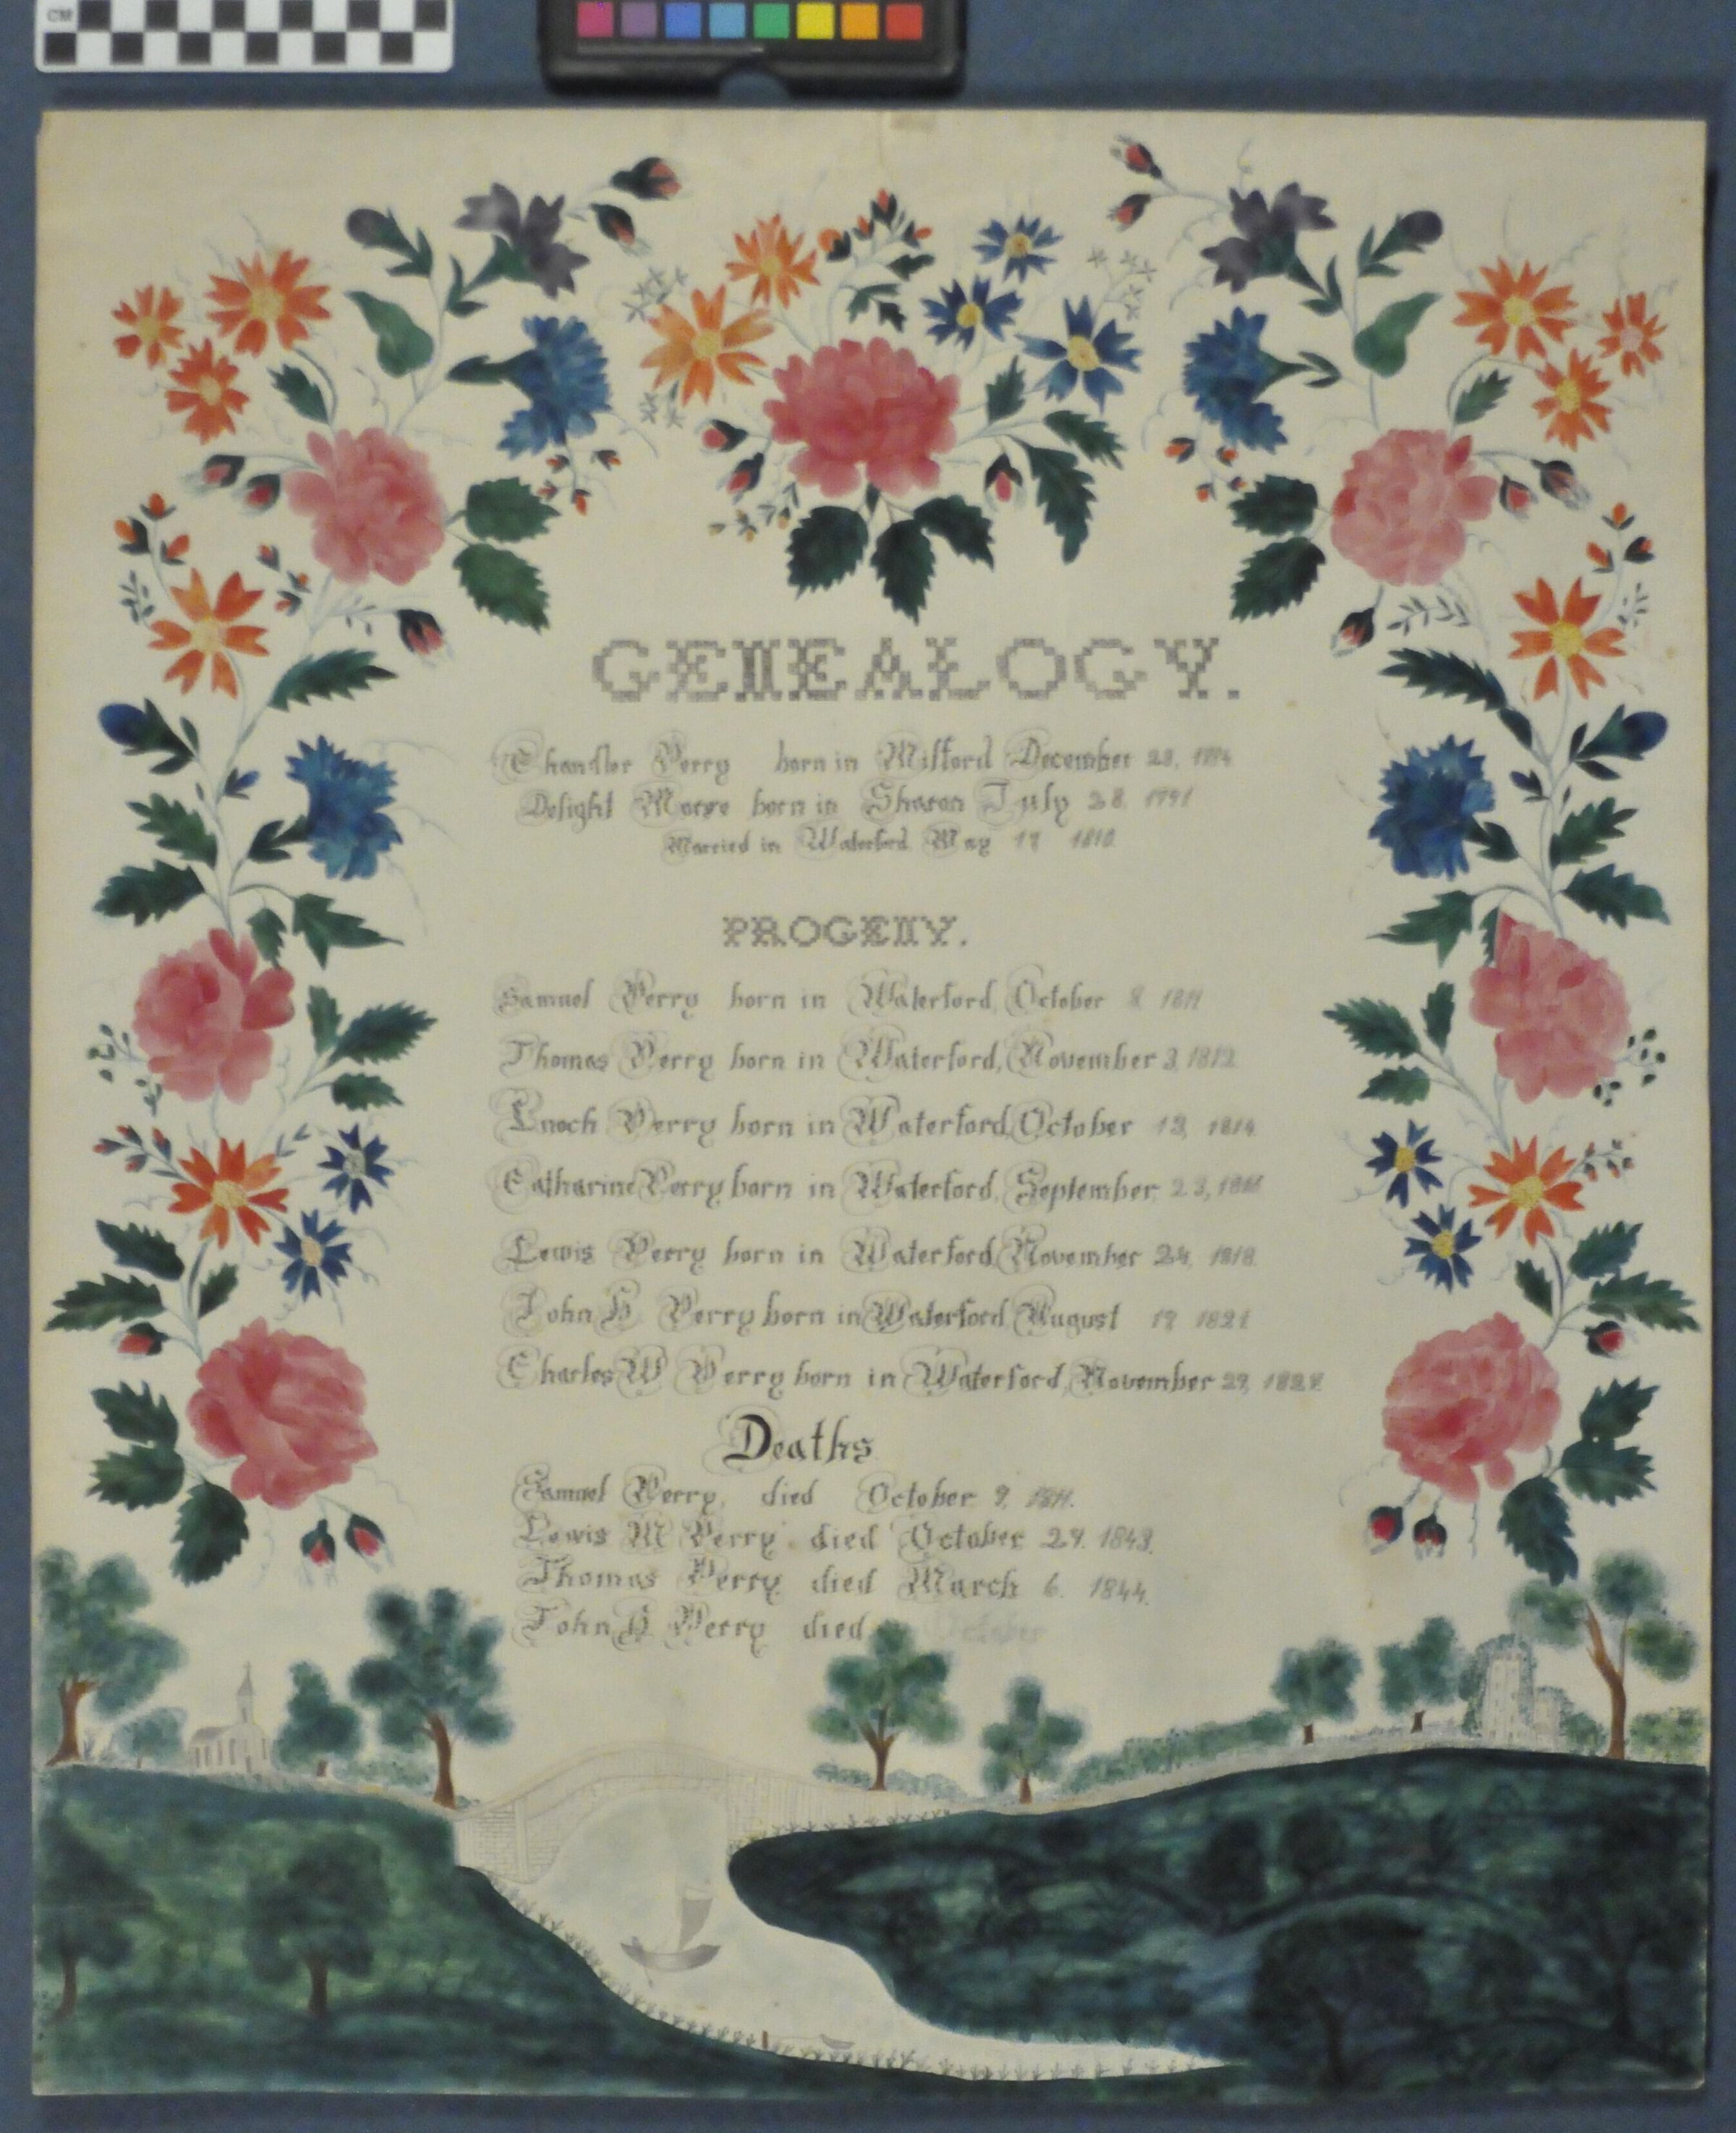 CM
GENEALOGY.
Chandler Perry born in Milford December 23,
Delight Morse born in Sharon July 28. 1791
Married in Waterford May 1810.
PROGENY.
Samuel Perry born in Waterford, October 8. 1811
Thomas Perry born in Waterford, November 3, 1812
Enoch Perry born in Waterford, October 13, 1814
Catharine Perry born in Waterford, September 23,
Lewis Perry born in Waterford, November 24, 1818.
John H Perry born in Waterford, August 1821
Charles W Perry born in Waterford, November
Deaths
Samuel Perry, died October 9, 1811.
Lewis M Perry died October 1843.
Thomas Perry died March 6. 1844.
John H Perry died October